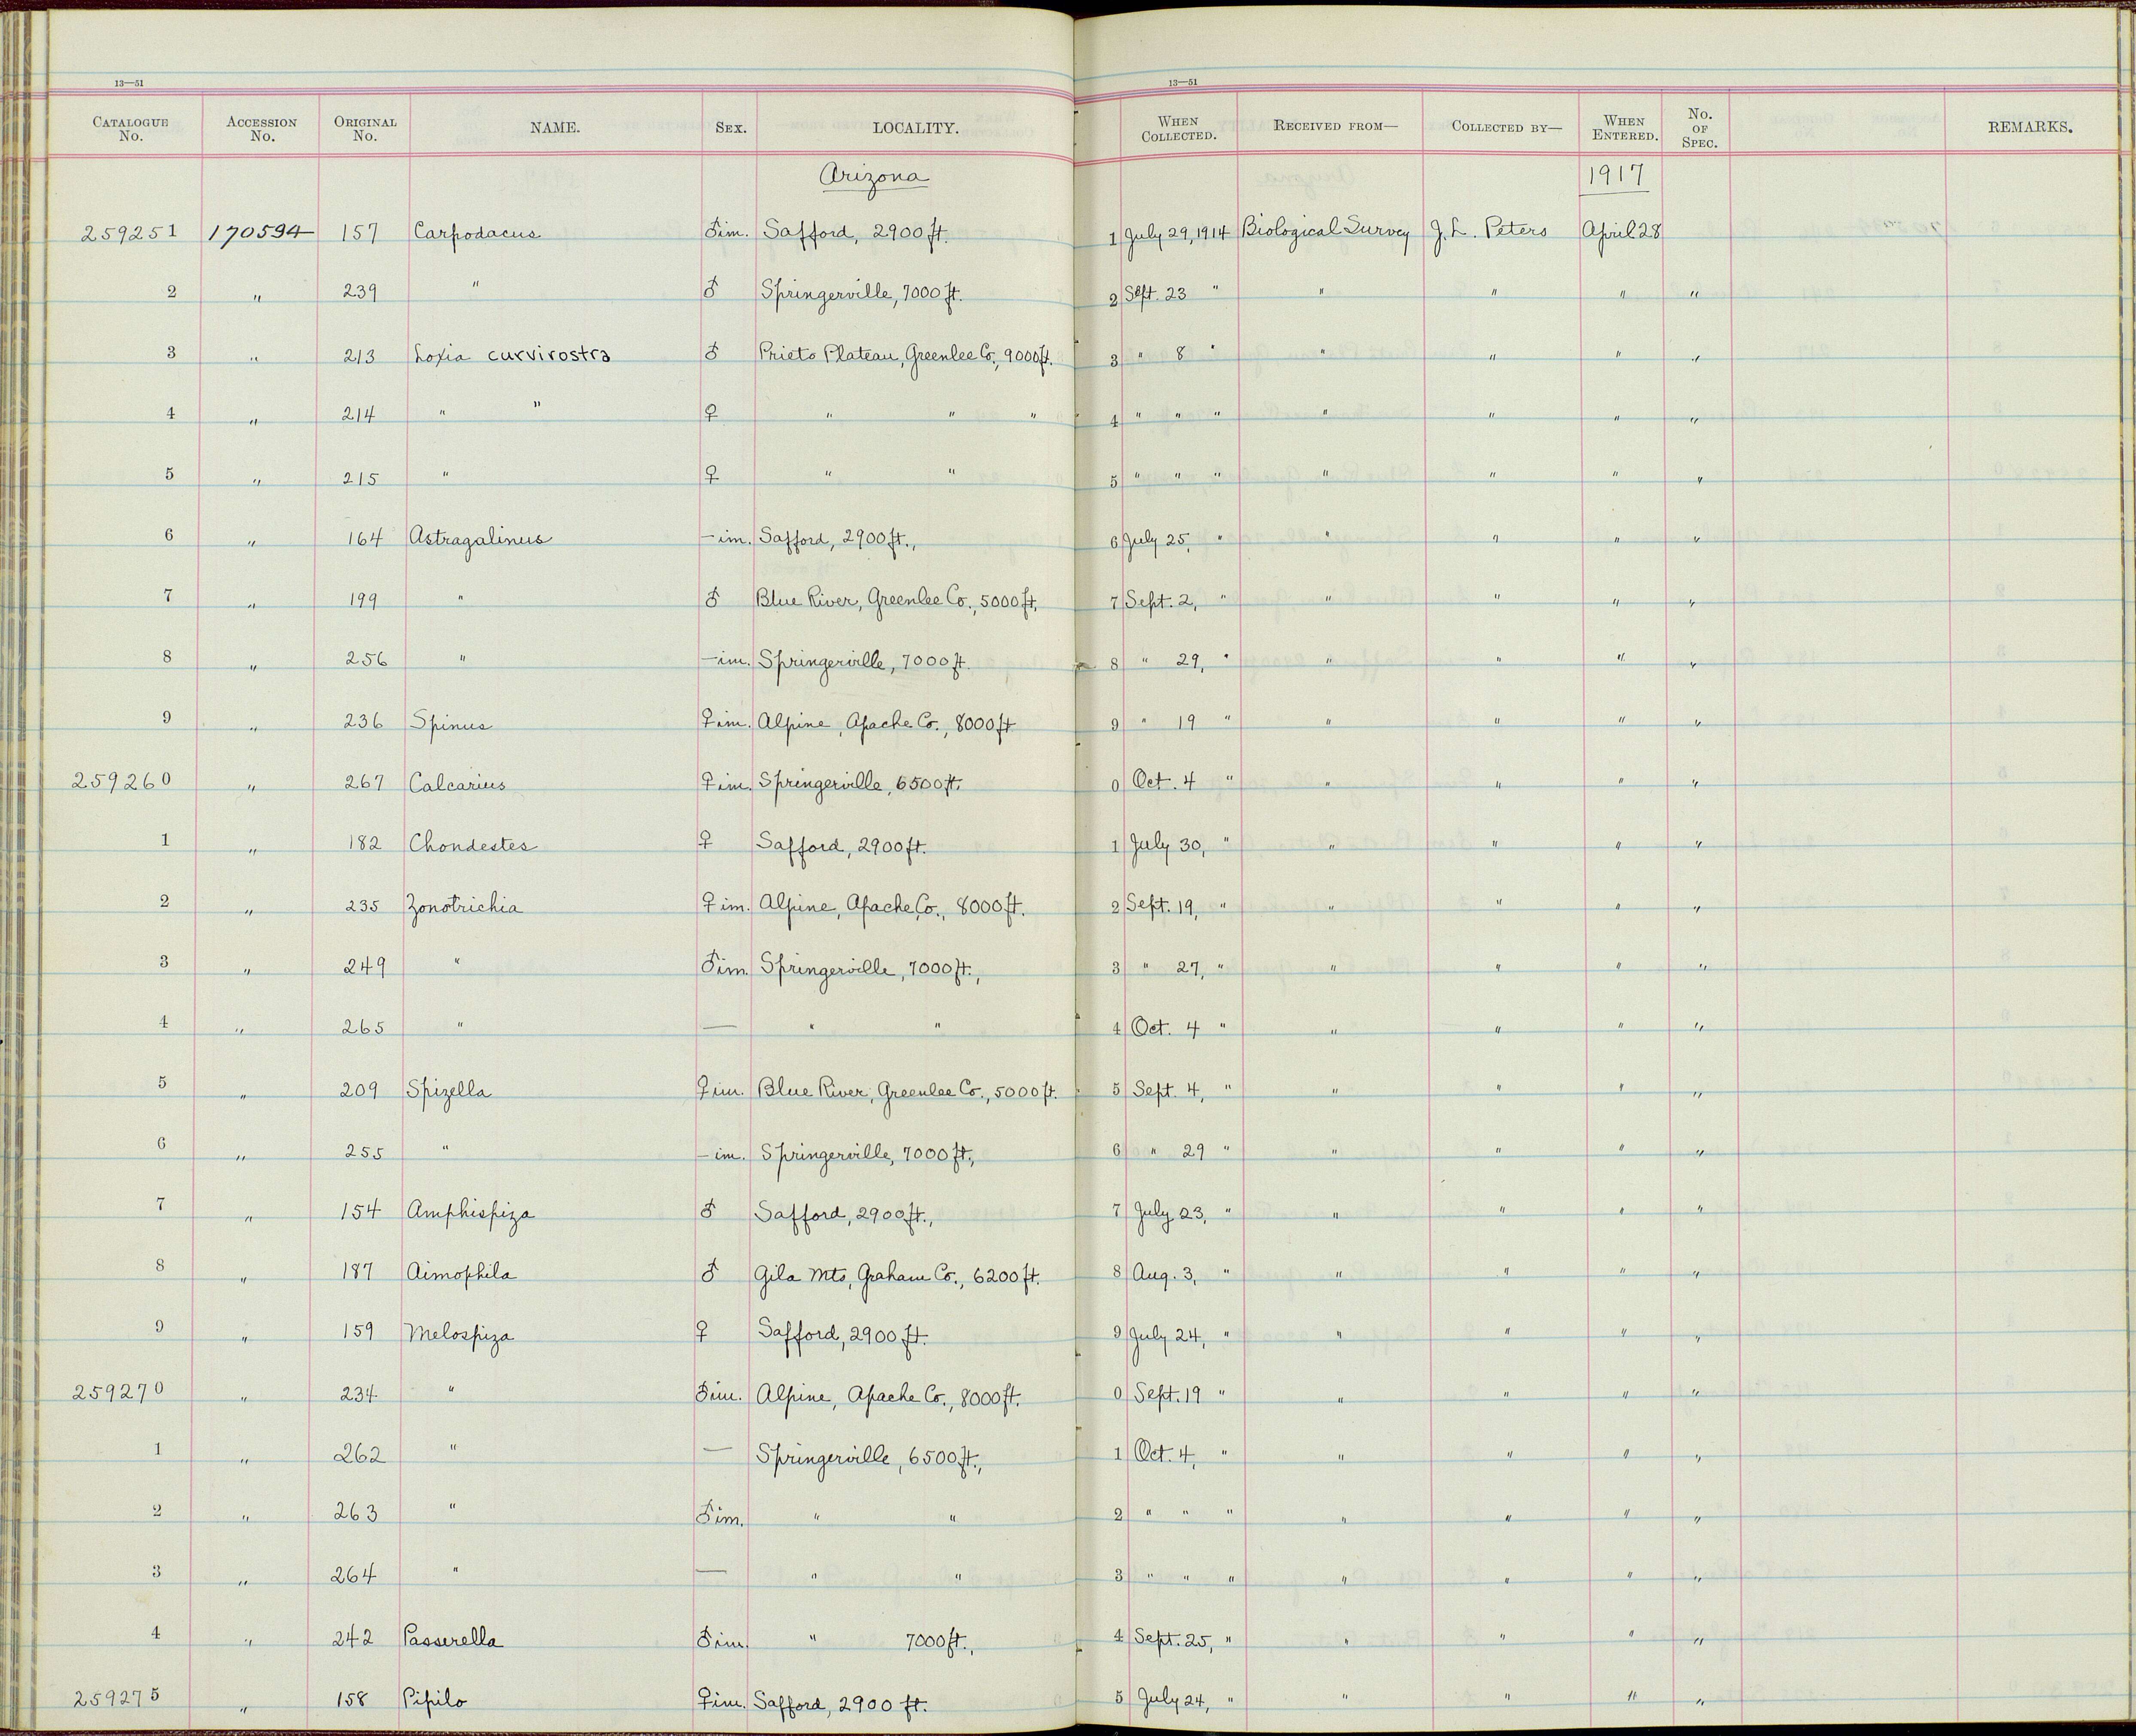 13—51 13—51
CATALOGUE No. ACCESSION No. ORIGINAL No. NAME. SEX. LOCALITY. WHEN COLLECTED. RECEIVED FROM— COLLECTED BY— WHEN ENTERED. No. OF SPEC. REMARKS.
Arizona 1917
259251 170594 157 Carpodacus ♂im. Safford, 2900 ft. 1 July 29, 1914 Biological Survey J. L. Peters April 28
2 " 239 " ♂ Springerville, 7000 ft. 2 Sept. 23 " " " " "
3 " 213 Loxia curvirostra ♂ Prieto Plateau, Greenlee Co., 9000 ft. 3 " 8 " " " " "
4 " 214 " " ♀ " " " 4 " " " " " " "
5 " 215 " ♀ " " 5 " " " " " " "
6 " 164 Astragalinus — im. Safford, 2900 ft., 6 July 25, " " " " "
7 " 199 " ♂ Blue River, Greenlee Co., 5000 ft. 7 Sept. 2, " " " " "
8 " 256 " — im. Springerville, 7000 ft. 8 " 29, " " " " "
9 " 236 Spinus ♀ im. Alpine, Apache Co., 8000 ft 9 " 19 " " " " "
259260 " 267 Calcarius ♀ im. Springerville, 6500 ft. 0 Oct. 4 " " " " "
1 " 182 Chondestes ♀ Safford, 2900 ft. 1 July 30, " " " " "
2 " 235 Zonotrichia ♀ im. Alpine, Apache Co., 8000 ft. 2 Sept. 19, " " " " "
3 " 249 " ♂im. Springerville, 7000 ft., 3 " 27, " " " " "
4 " 265 " — " " 4 Oct. 4 " " " " "
5 " 209 Spizella ♀ im. Blue River, Greenlee Co., 5000 ft. 5 Sept. 4, " " " " "
6 " 255 " — im. Springerville, 7000 ft., 6 " 29 " " " " "
7 " 154 Amphispiza ♂ Safford, 2900 ft., 7 July 23, " " " " "
8 " 187 Aimophila ♂ Gila Mts, Graham Co., 6200 ft. 8 Aug. 3, " " " " "
9 " 159 Melospiza ♀ Safford, 2900 ft. 9 July 24, " " " " "
259270 " 234 " ♂im. Alpine, Apache Co., 8000 ft. 0 Sept. 19 " " " " "
1 " 262 " — Springerville, 6500 ft., 1 Oct. 4, " " " " "
2 " 263 " ♂im. " " 2 " " " " " " "
3 " 264 " — " " 3 " " " " " " "
4 " 242 Passerella ♂im. " 7000 ft., 4 Sept. 25, " " " " "
259275 " 158 Pipilo ♀im. Safford, 2900 ft. 5 July 24, " " " " "